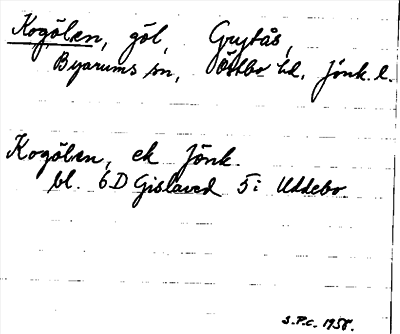 Kogölen, göl, Grytås,
Byarums sn, Östbo hd, Jönk. l.
Kogölen, ek Jönk.
bl. 6D Gislaved 5i Uddebo
S.P.C. 1958.